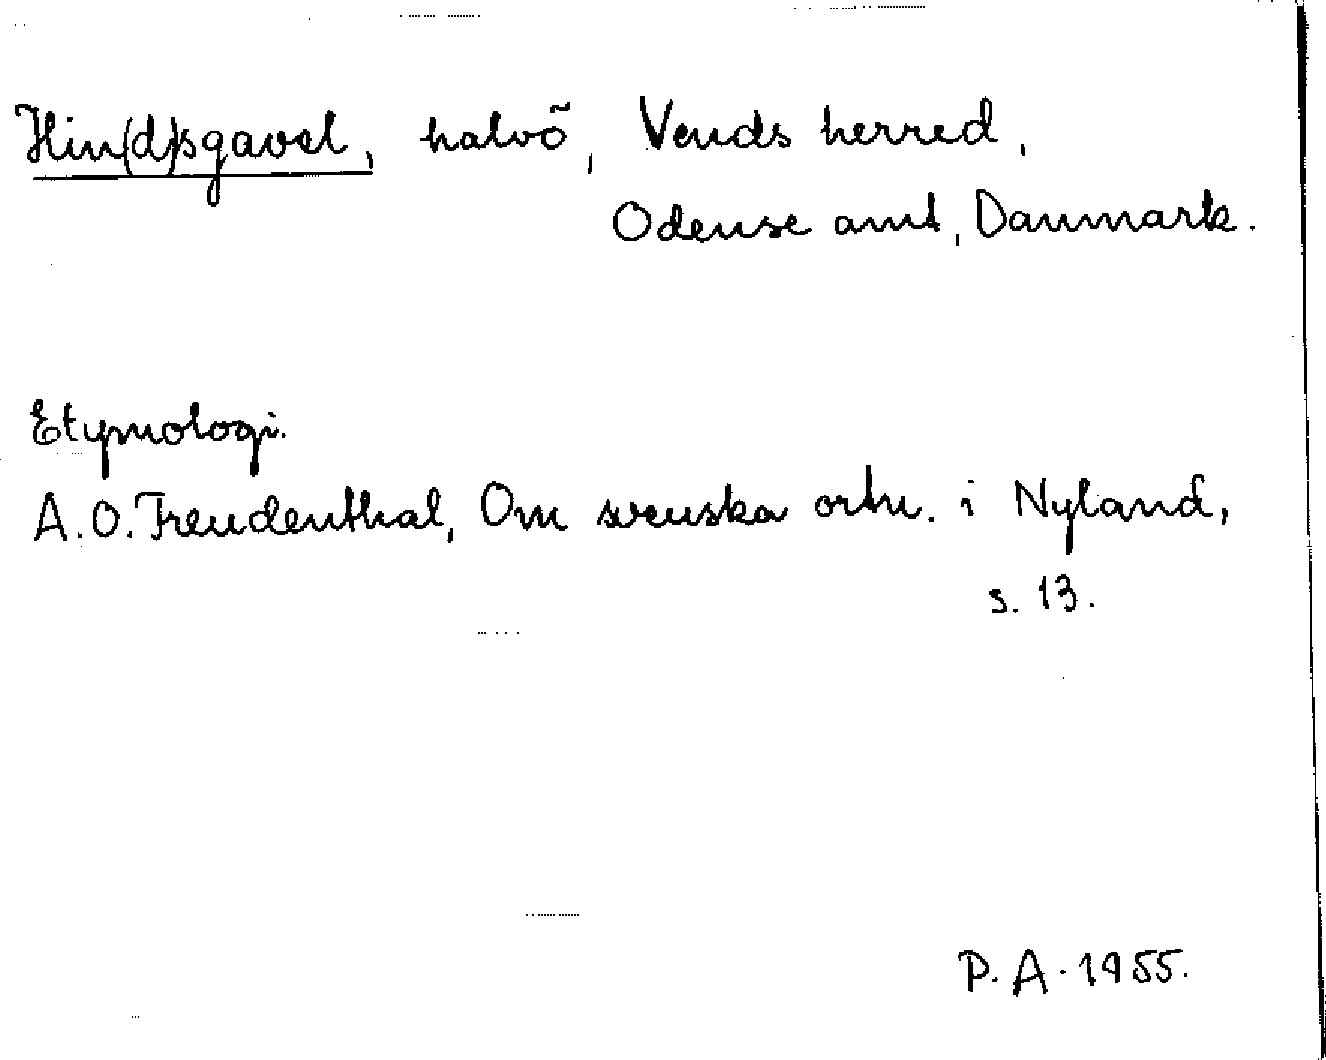 Hin(d)sgavel, halvö, Vends herred,
Odense amt, Danmark.
Etymologi.
A.O. Freudenthal, Om svenska ortn. i Nyland,
s. 13.
P.A. 1955.